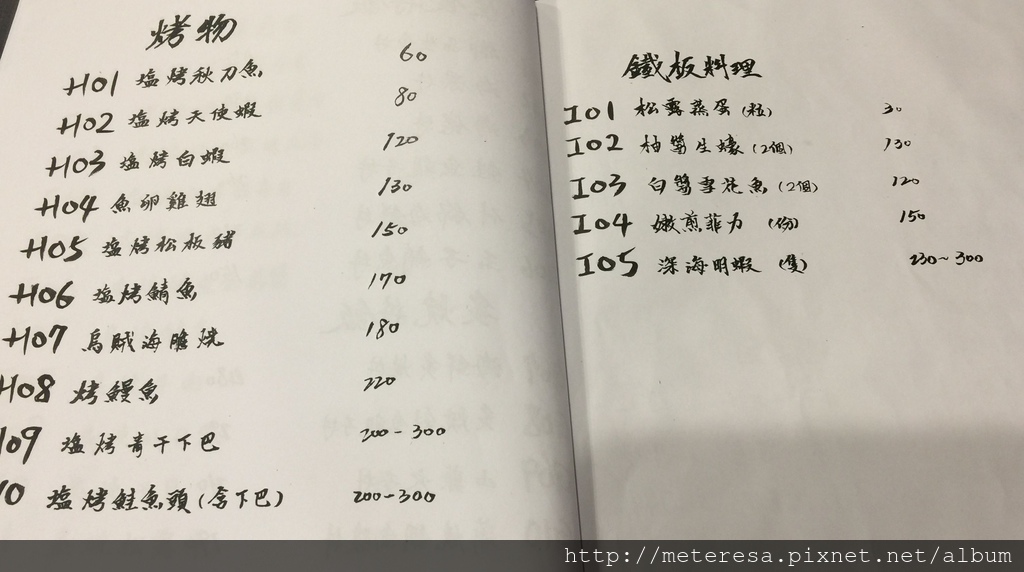 烤物
H01 塩烤秋刀魚 60
H02 塩烤天使蝦 80
H03 塩烤白蝦 120
H04 魚卵雞翅 130
H05 塩烤松板豬 150
H06 塩烤鯖魚 170
H07 烏賊海膽燒 180
H08 烤鰻魚 220
H09 塩烤青干下巴 200-300
10 塩烤鮭魚頭(含下巴) 200-300
鐵板料理
I01 松露蒸蛋(粒) 30
I02 柚醬生蠔(2個) 130
I03 白醬雪花魚(2個) 120
I04 嫩煎菲力 (份) 150
I05 深海明蝦 (隻) 230~300
http://meteresa.pixnet.net/album